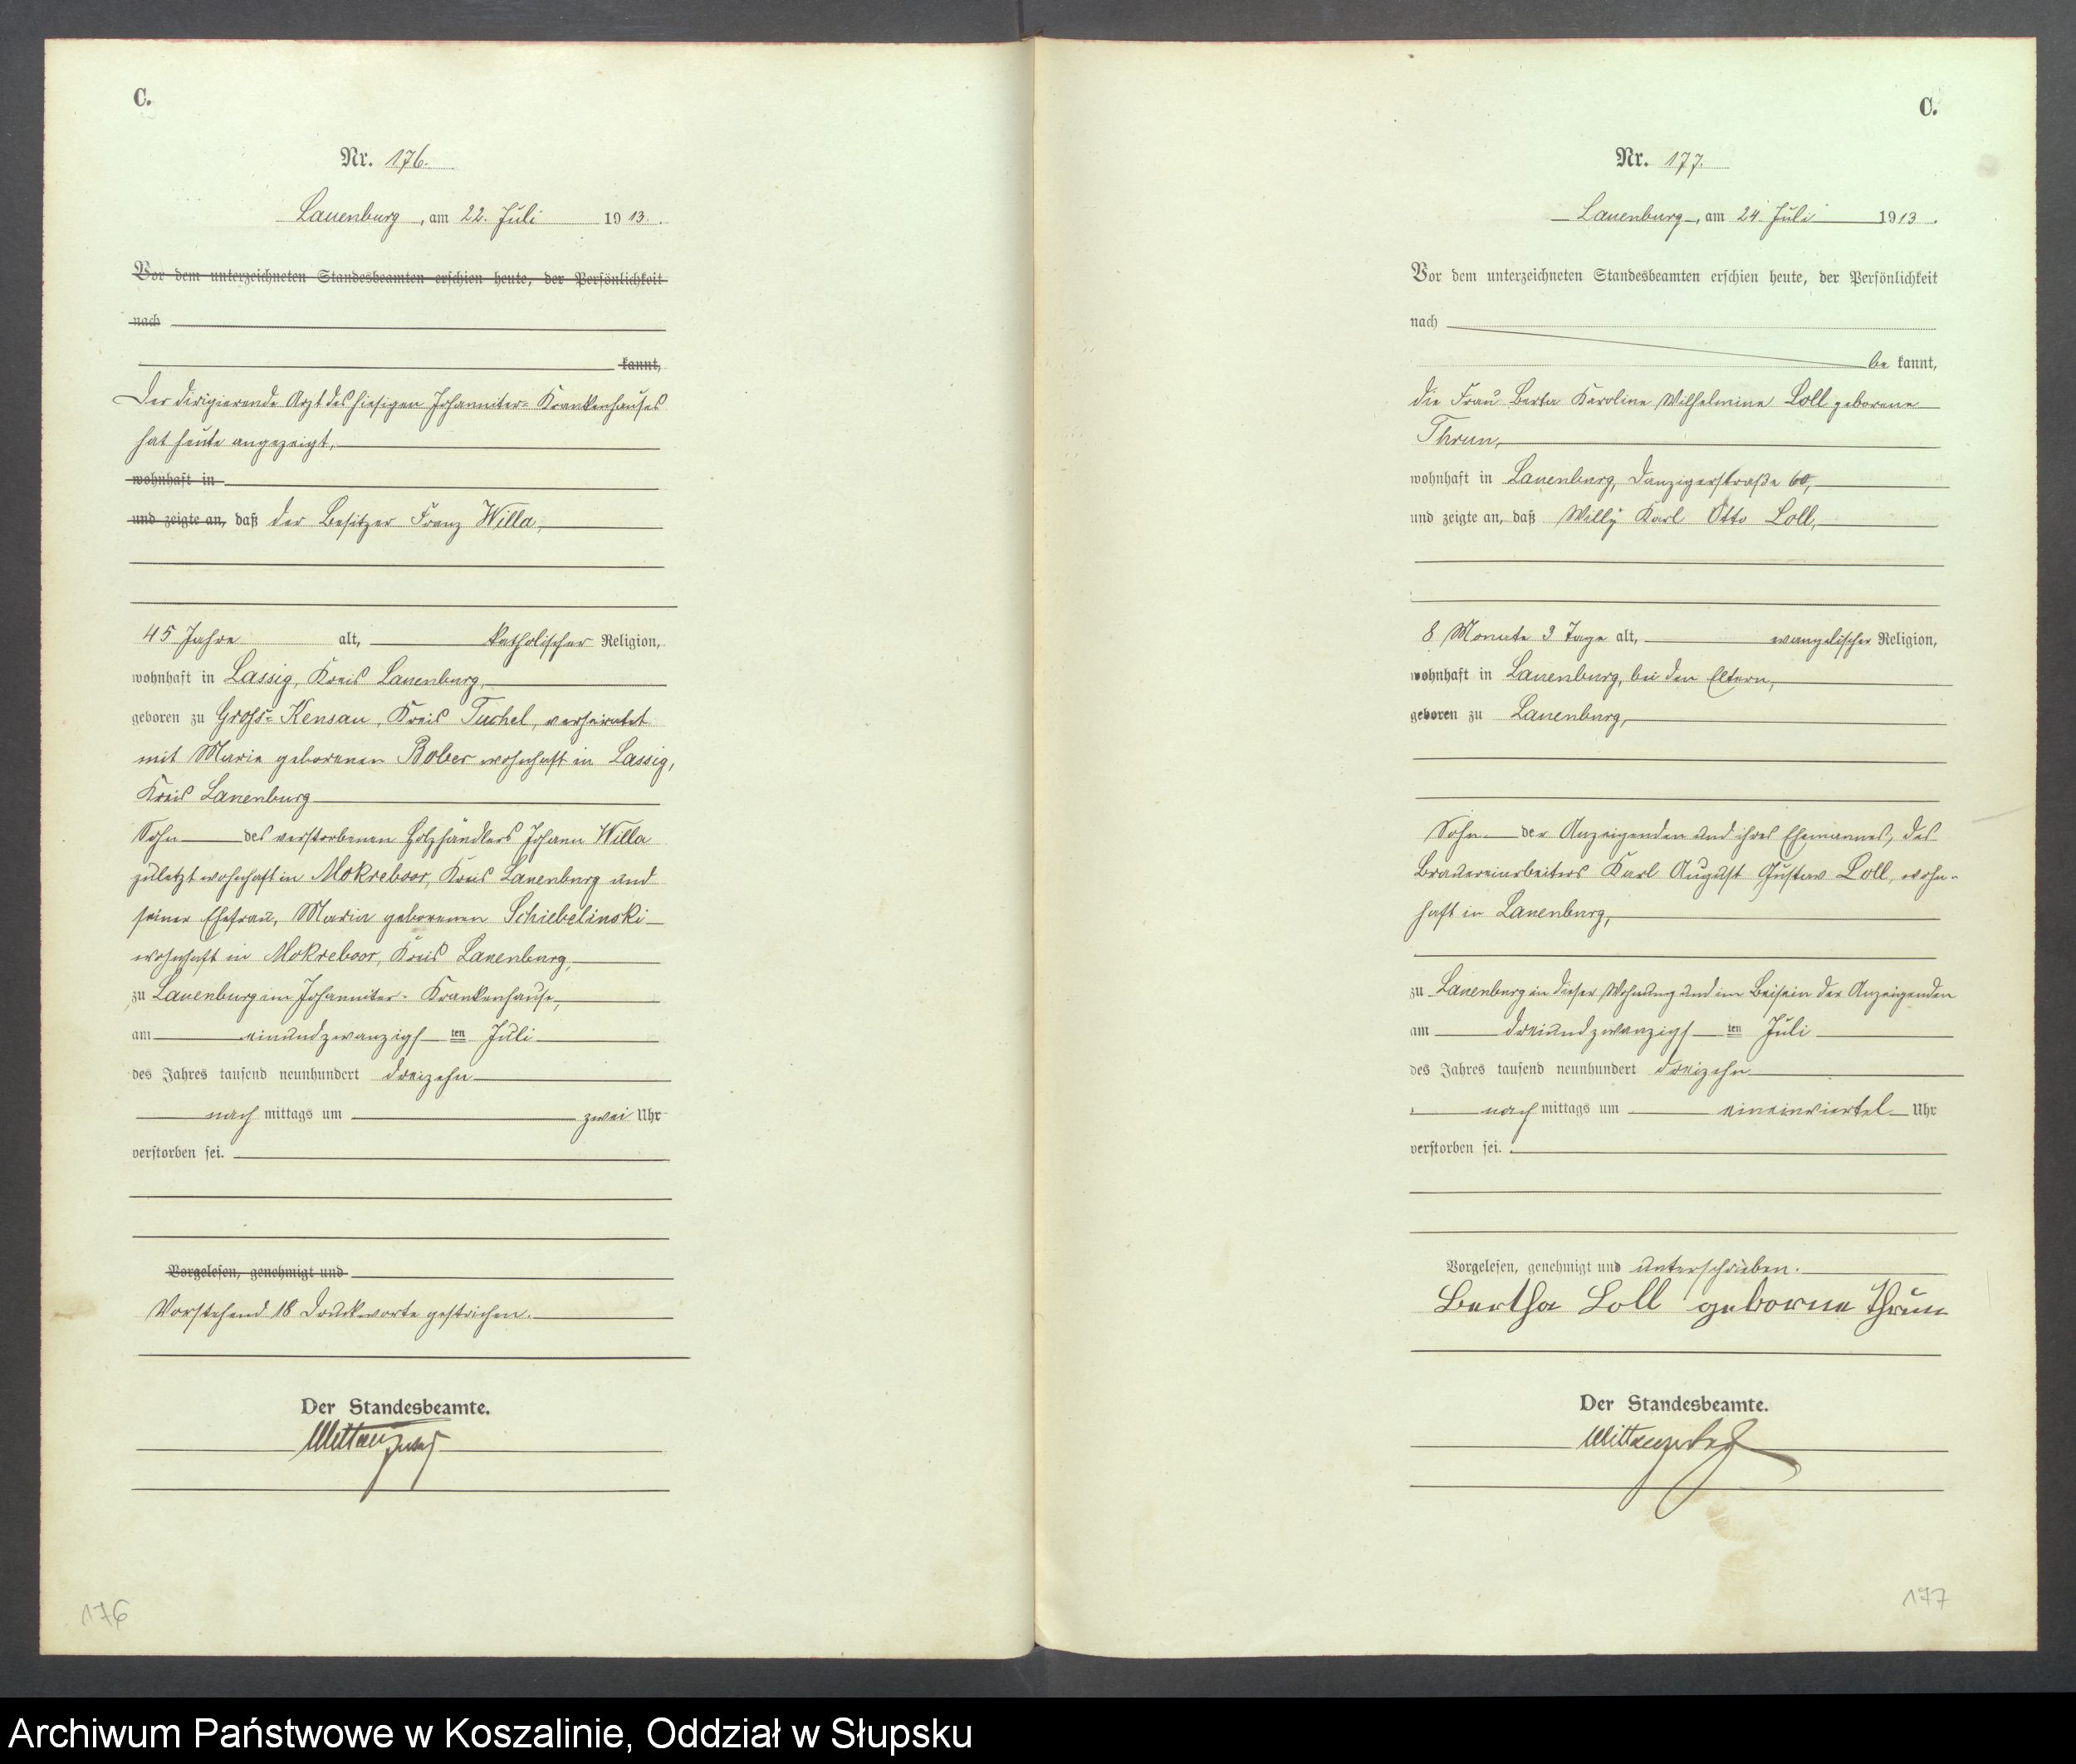 C.
Nr. 176.
Lauenburg, am 22. Juli 1913.
Vor dem unterzeichneten Standesbeamten erschien heute, der Persönlichkeit
nach
kannt,
Der dirigierende Arzt des hiesigen Johanniter-Krankenhauses
hat heute angezeigt,
wohnhaft in
und zeigte an, daß der Besitzer Franz Willa,
45 Jahre alt, katholischer Religion,
wohnhaft in Lassig, Kreis Lauenburg,
geboren zu Groß-Kensau, Kreis Tuchel, verheiratet
mit Marie geborenen Bober wohnhaft in Lassig,
Kreis Lauenburg
Sohn des verstorbenen Holzhändlers Johann Willa
zuletzt wohnhaft in Mokreboor, Kreis Lauenburg und
seiner Ehefrau, Maria geborenen Schiebelinski
wohnhaft in Mokreboor, Kreis Lauenburg,
zu Lauenburg im Johanniter-Krankenhause,
am einundzwanzigsten Juli
des Jahres tausend neunhundert dreizehn
nachmittags um zwei Uhr
verstorben sei.
Vorgelesen, genehmigt und
Vorstehend 18 Druckworte gestrichen.
Der Standesbeamte.
176
C.
Nr. 177.
Lauenburg, am 24. Juli 1913.
Vor dem unterzeichneten Standesbeamten erschien heute, der Persönlichkeit
nach
bekannt,
die Frau Berta Karoline Wilhelmine Loll geborene
Thrun,
wohnhaft in Lauenburg, Danzigerstraße 60,
und zeigte an, daß Willy Karl Otto Loll,
8 Monate 3 Tage alt, evangelischer Religion,
wohnhaft in Lauenburg, bei den Eltern,
geboren zu Lauenburg,
Sohn der Anzeigenden und ihres Ehemannes, des
Brauereiarbeiters Karl August Gustav Loll, wohn-
haft in Lauenburg,
zu Lauenburg in dieser Wohnung und im Beisein der Anzeigenden
am dreiundzwanzigsten Juli
des Jahres tausend neunhundert dreizehn
nachmittags um eineinviertel Uhr
verstorben sei.
Vorgelesen, genehmigt und unterschrieben.
Bertha Loll geborne Thrun
Der Standesbeamte.
177
Archiwum Państwowe w Koszalinie, Oddział w Słupsku